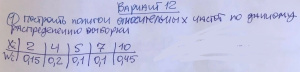 Вариант 12
1) Построить полигон относительных частот по данному
распределению выборки
Xi | 2 | 4 | 5 | 7 | 10
Wi | 0,15 | 0,2 | 0,1 | 0,1 | 0,45